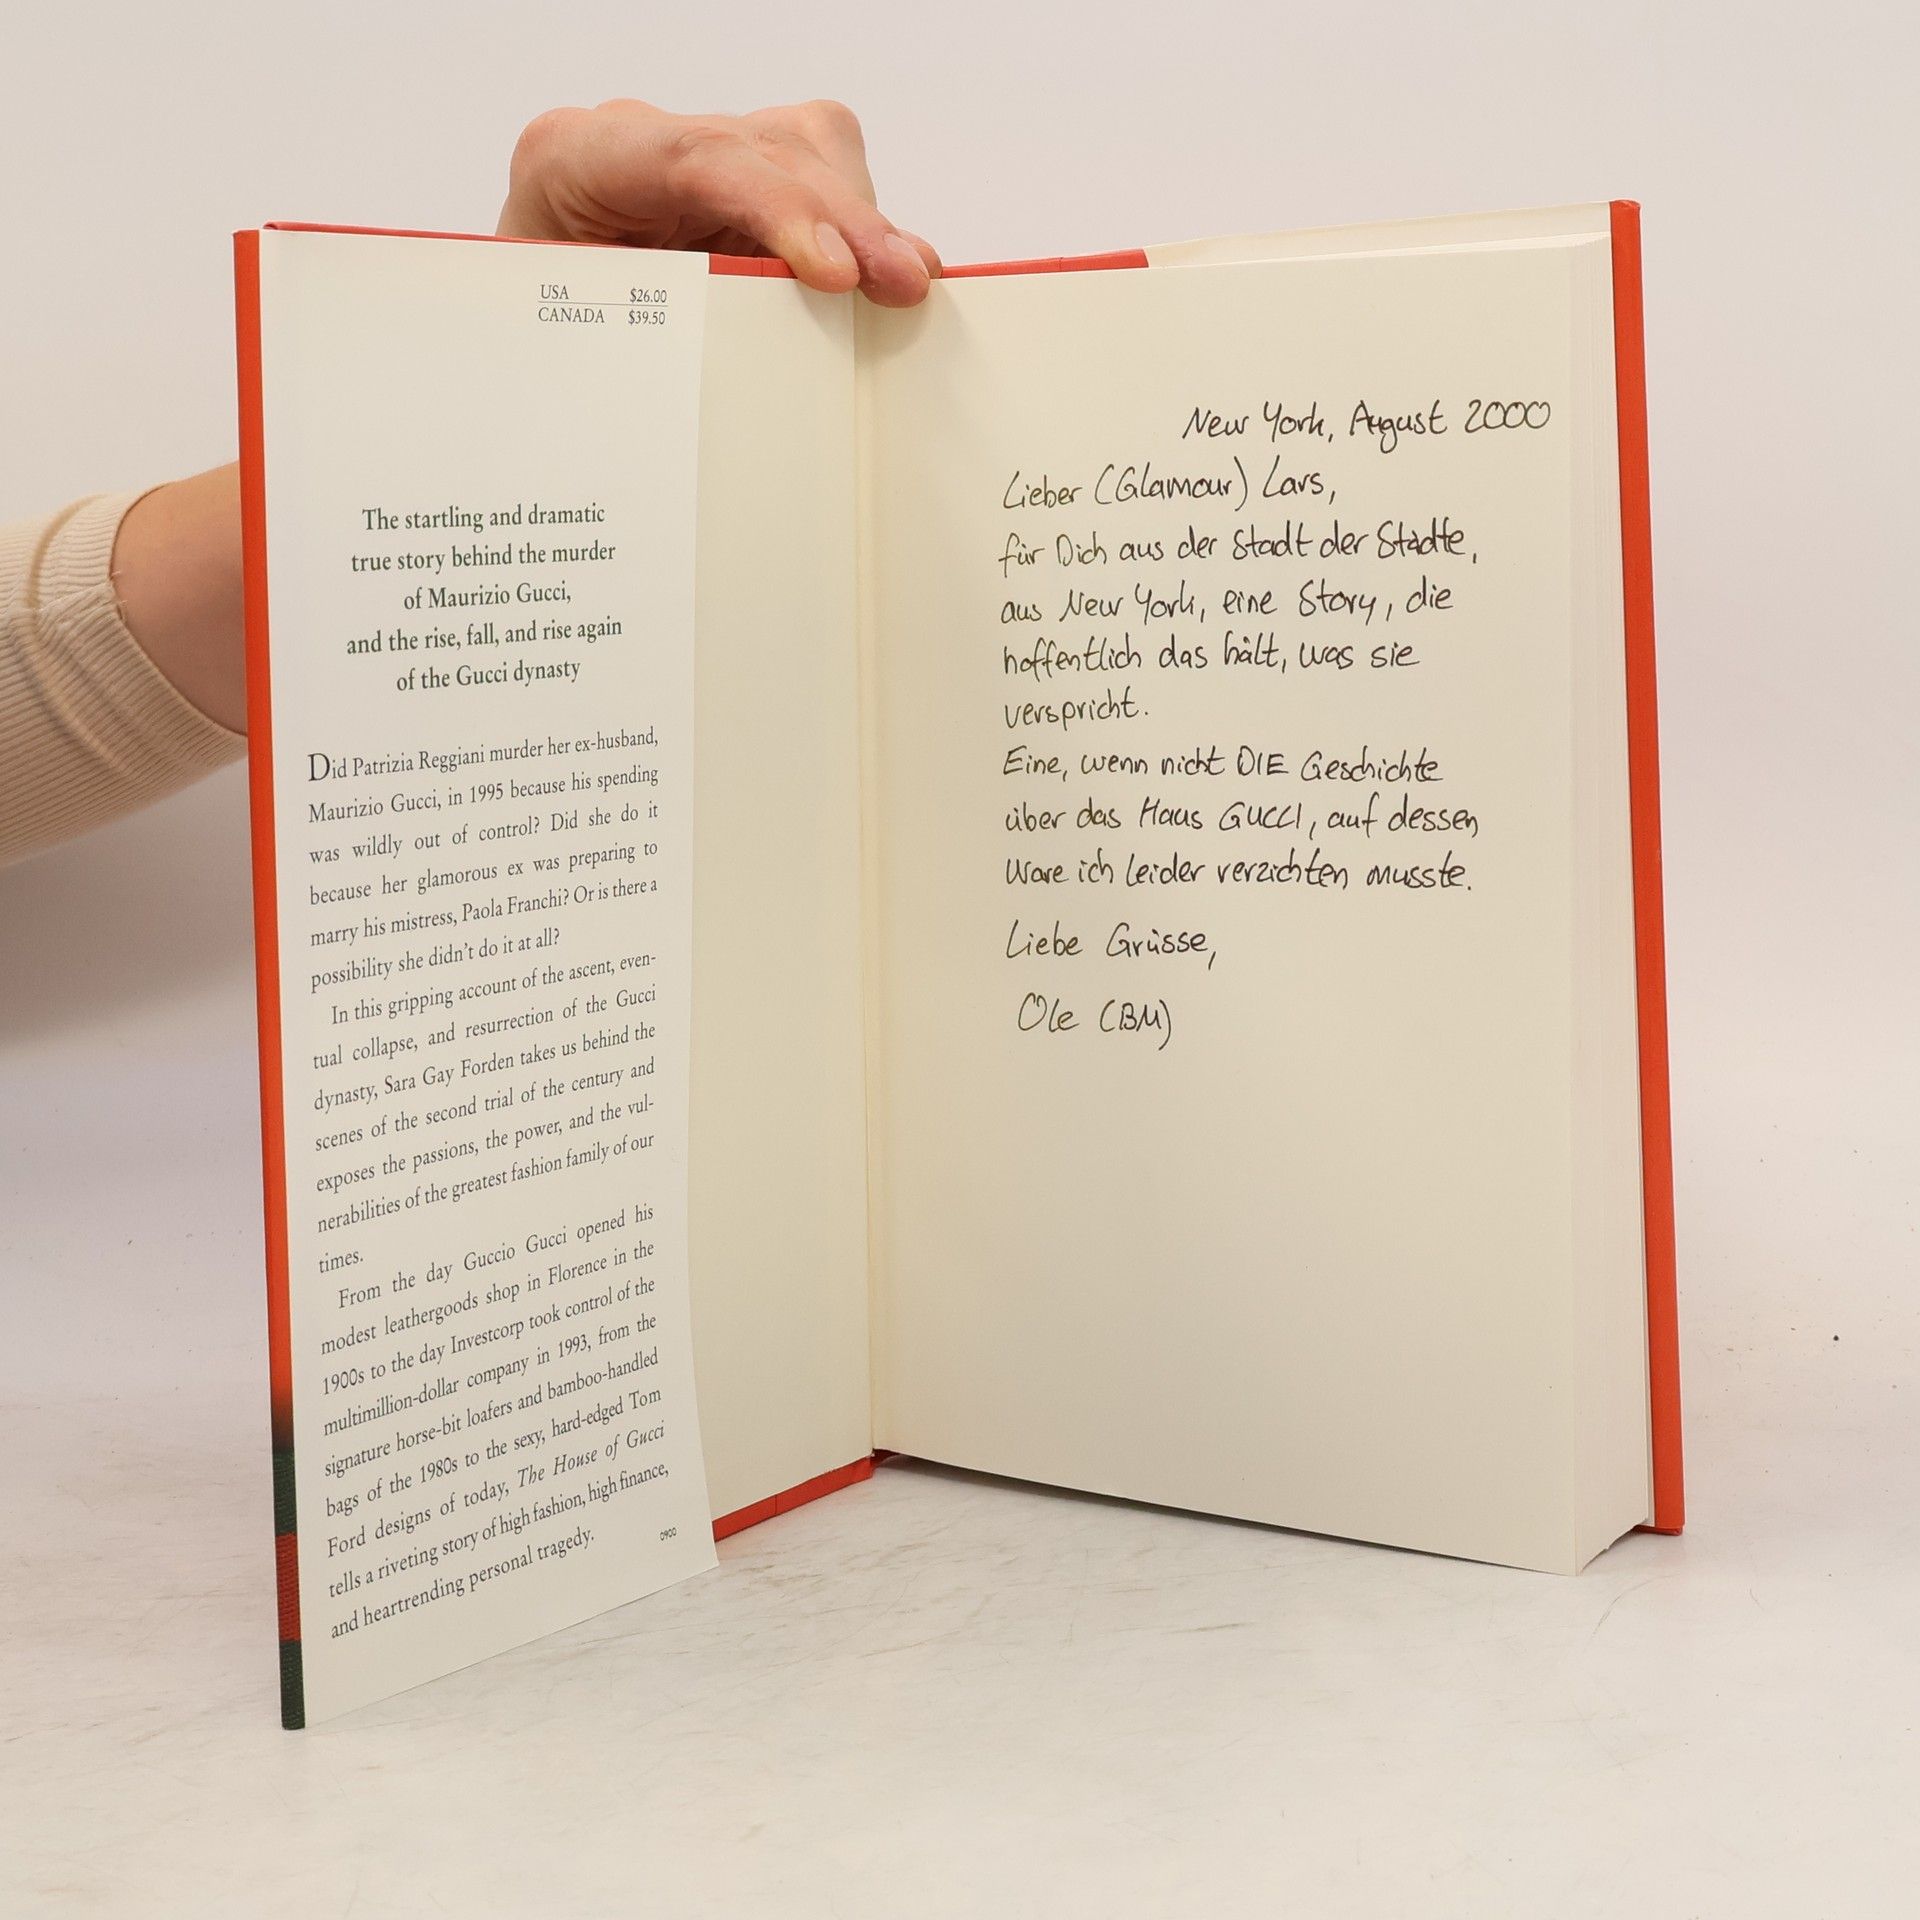 USA $26.00
CANADA $39.50
The startling and dramatic
true story behind the murder
of Maurizio Gucci,
and the rise, fall, and rise again
of the Gucci dynasty
Did Patrizia Reggiani murder her ex-husband,
Maurizio Gucci, in 1995 because his spending
was wildly out of control? Did she do it
because her glamorous ex was preparing to
marry his mistress, Paola Franchi? Or is there a
possibility she didn't do it at all?
In this gripping account of the ascent, even-
tual collapse, and resurrection of the Gucci
dynasty, Sara Gay Forden takes us behind the
scenes of the second trial of the century and
exposes the passions, the power, and the vul-
nerabilities of the greatest fashion family of our
times.
From the day Guccio Gucci opened his
modest leathergoods shop in Florence in the
1900s to the day Investcorp took control of the
multimillion-dollar company in 1993, from the
signature horse-bit loafers and bamboo-handled
bags of the 1980s to the sexy, hard-edged Tom
Ford designs of today, The House of Gucci
tells a riveting story of high fashion, high finance,
and heartrending personal tragedy.
0900
New York, August 2000
Lieber (Glamour) Lars,
für Dich aus der Stadt der Städte,
aus New York, eine Story, die
hoffentlich das hält, was sie
verspricht.
Eine, wenn nicht DIE Geschichte
über das Haus GUCCI, auf dessen
Ware ich leider verzichten musste.
Liebe Grüsse,
Ole (BM)